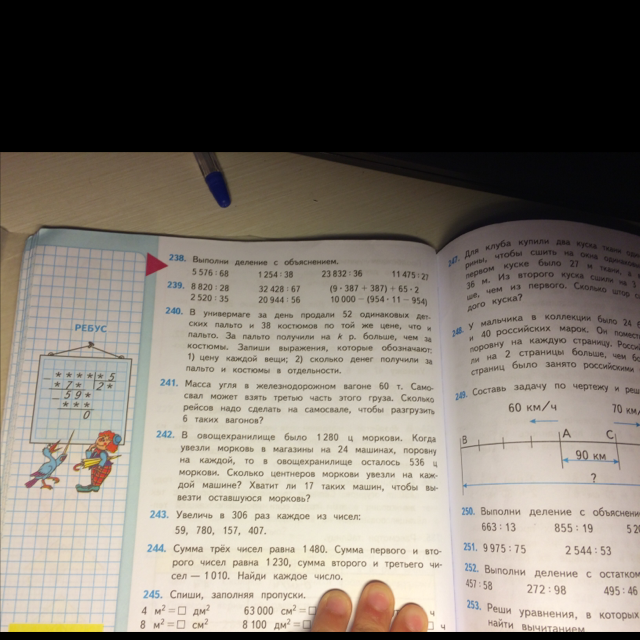 238. Выполни деление с объяснением.
5 576 : 68 1 254 : 38 23 832 : 36 11 475 : 27
239. 8 820 : 28 32 428 : 67 (9 · 387 + 387) + 65 · 2
2 520 : 35 20 944 : 56 10 000 − (954 · 11 − 954)
240. В универмаге за день продали 52 одинаковых дет-
ских пальто и 38 костюмов по той же цене, что и
пальто. За пальто получили на k р. больше, чем за
костюмы. Запиши выражения, которые обозначают:
1) цену каждой вещи; 2) сколько денег получили за
пальто и костюмы в отдельности.
241. Масса угля в железнодорожном вагоне 60 т. Само-
свал может взять третью часть этого груза. Сколько
рейсов надо сделать на самосвале, чтобы разгрузить
6 таких вагонов?
242. В овощехранилище было 1 280 ц моркови. Когда
увезли морковь в магазины на 24 машинах, поровну
на каждой, то в овощехранилище осталось 536 ц
моркови. Сколько центнеров моркови увезли на каж-
дой машине? Хватит ли 17 таких машин, чтобы вы-
везти оставшуюся морковь?
243. Увеличь в 306 раз каждое из чисел:
59, 780, 157, 407.
244. Сумма трёх чисел равна 1 480. Сумма первого и вто-
рого чисел равна 1 230, сумма второго и третьего чи-
сел — 1 010. Найди каждое число.
245. Спиши, заполняя пропуски.
4 м² = □ дм² 63 000 см² = □ ч
8 м² = □ см² 8 100 дм² = □ ч
РЕБУС
* * * * * 5
* 7 * 2 *
− 5 9 *
* * *
0
247. Для клуба купили два куска ткани
рины, чтобы сшить на окна
первом куске было 27 м ткани, а
36 м. Из второго куска сшили на 3
ше, чем из первого. Сколько штор
дого куска?
248. У мальчика в коллекции было 24
и 40 российских марок. Он
поровну на каждую страницу.
ли на 2 страницы больше, чем
страниц было занято российскими
249. Составь задачу по чертежу и
60 км/ч 70
В А С
90 км
?
250. Выполни деление с
663 : 13 855 : 19
251. 9 975 : 75 2 544 : 53
252. Выполни деление с остатком
457 : 58 272 : 98 495 : 46
253. Реши уравнения, в которых
найти вычитанием.